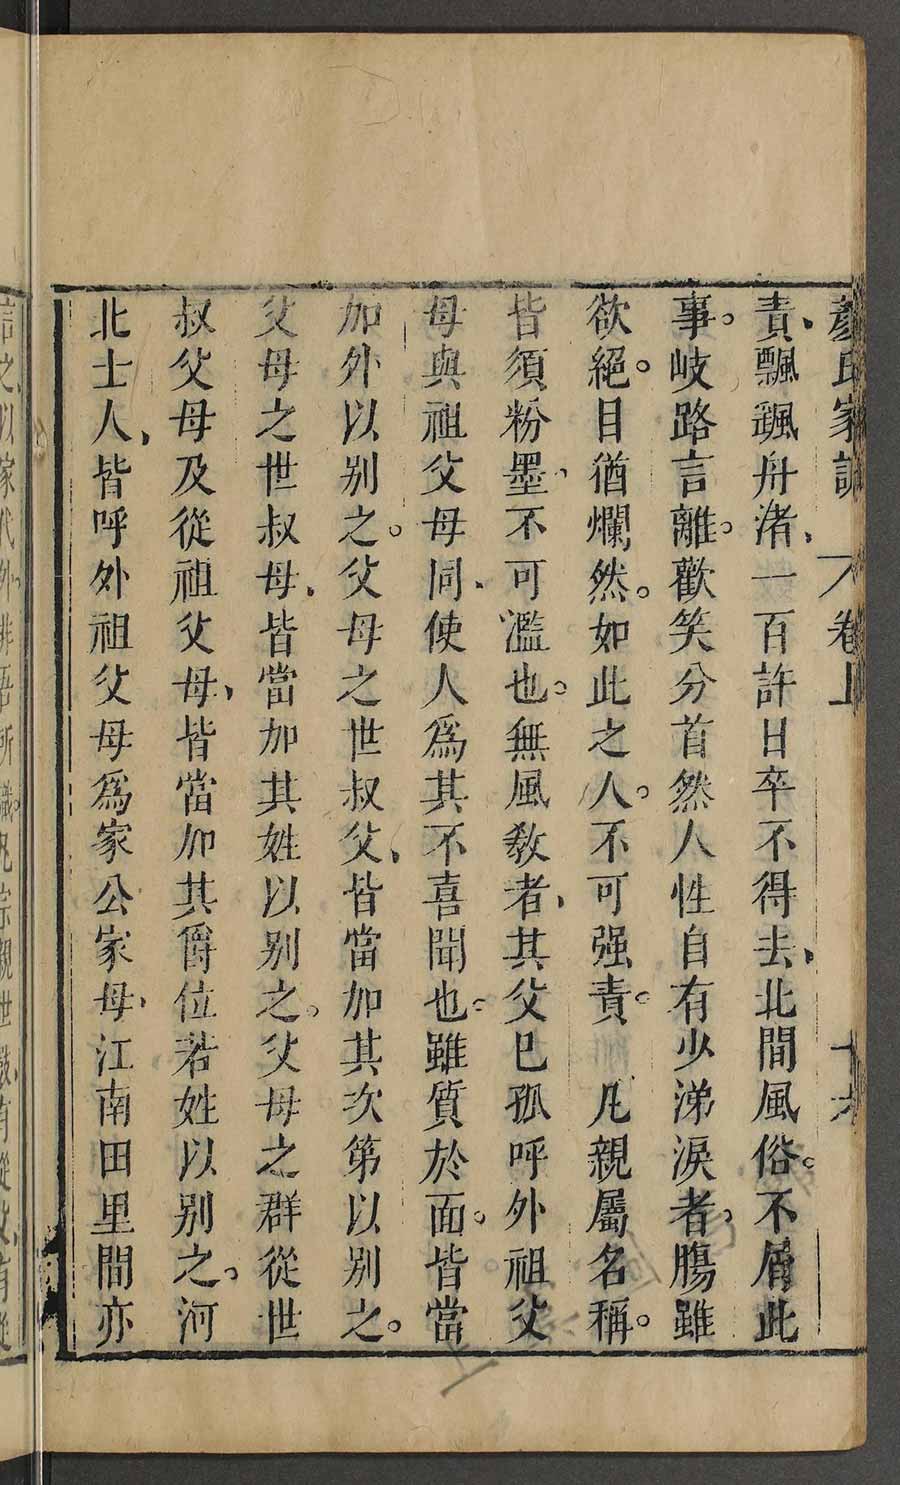 顏氏家訓 卷上 十六
責、飄颻舟渚、一百許日卒不得去、北間風俗。不屑此
事。岐路言離。歡笑分首然人性自有少涕淚者、腸雖
欲絕。目猶爛然。如此之人。不可强責。 凡親屬名稱。
皆須粉墨、不可濫也。無風教者、其父已孤呼外祖父
母與祖父母同、使人爲其不喜聞也。雖質於面。皆當
加外以别之。父母之世叔父、皆當加其次第以别之。
父母之世叔母、皆當加其姓以别之。父母之群從世
叔父母及從祖父母、皆當加其爵位若姓以别之。河
北士人、皆呼外祖父母爲家公家母、江南田里間亦